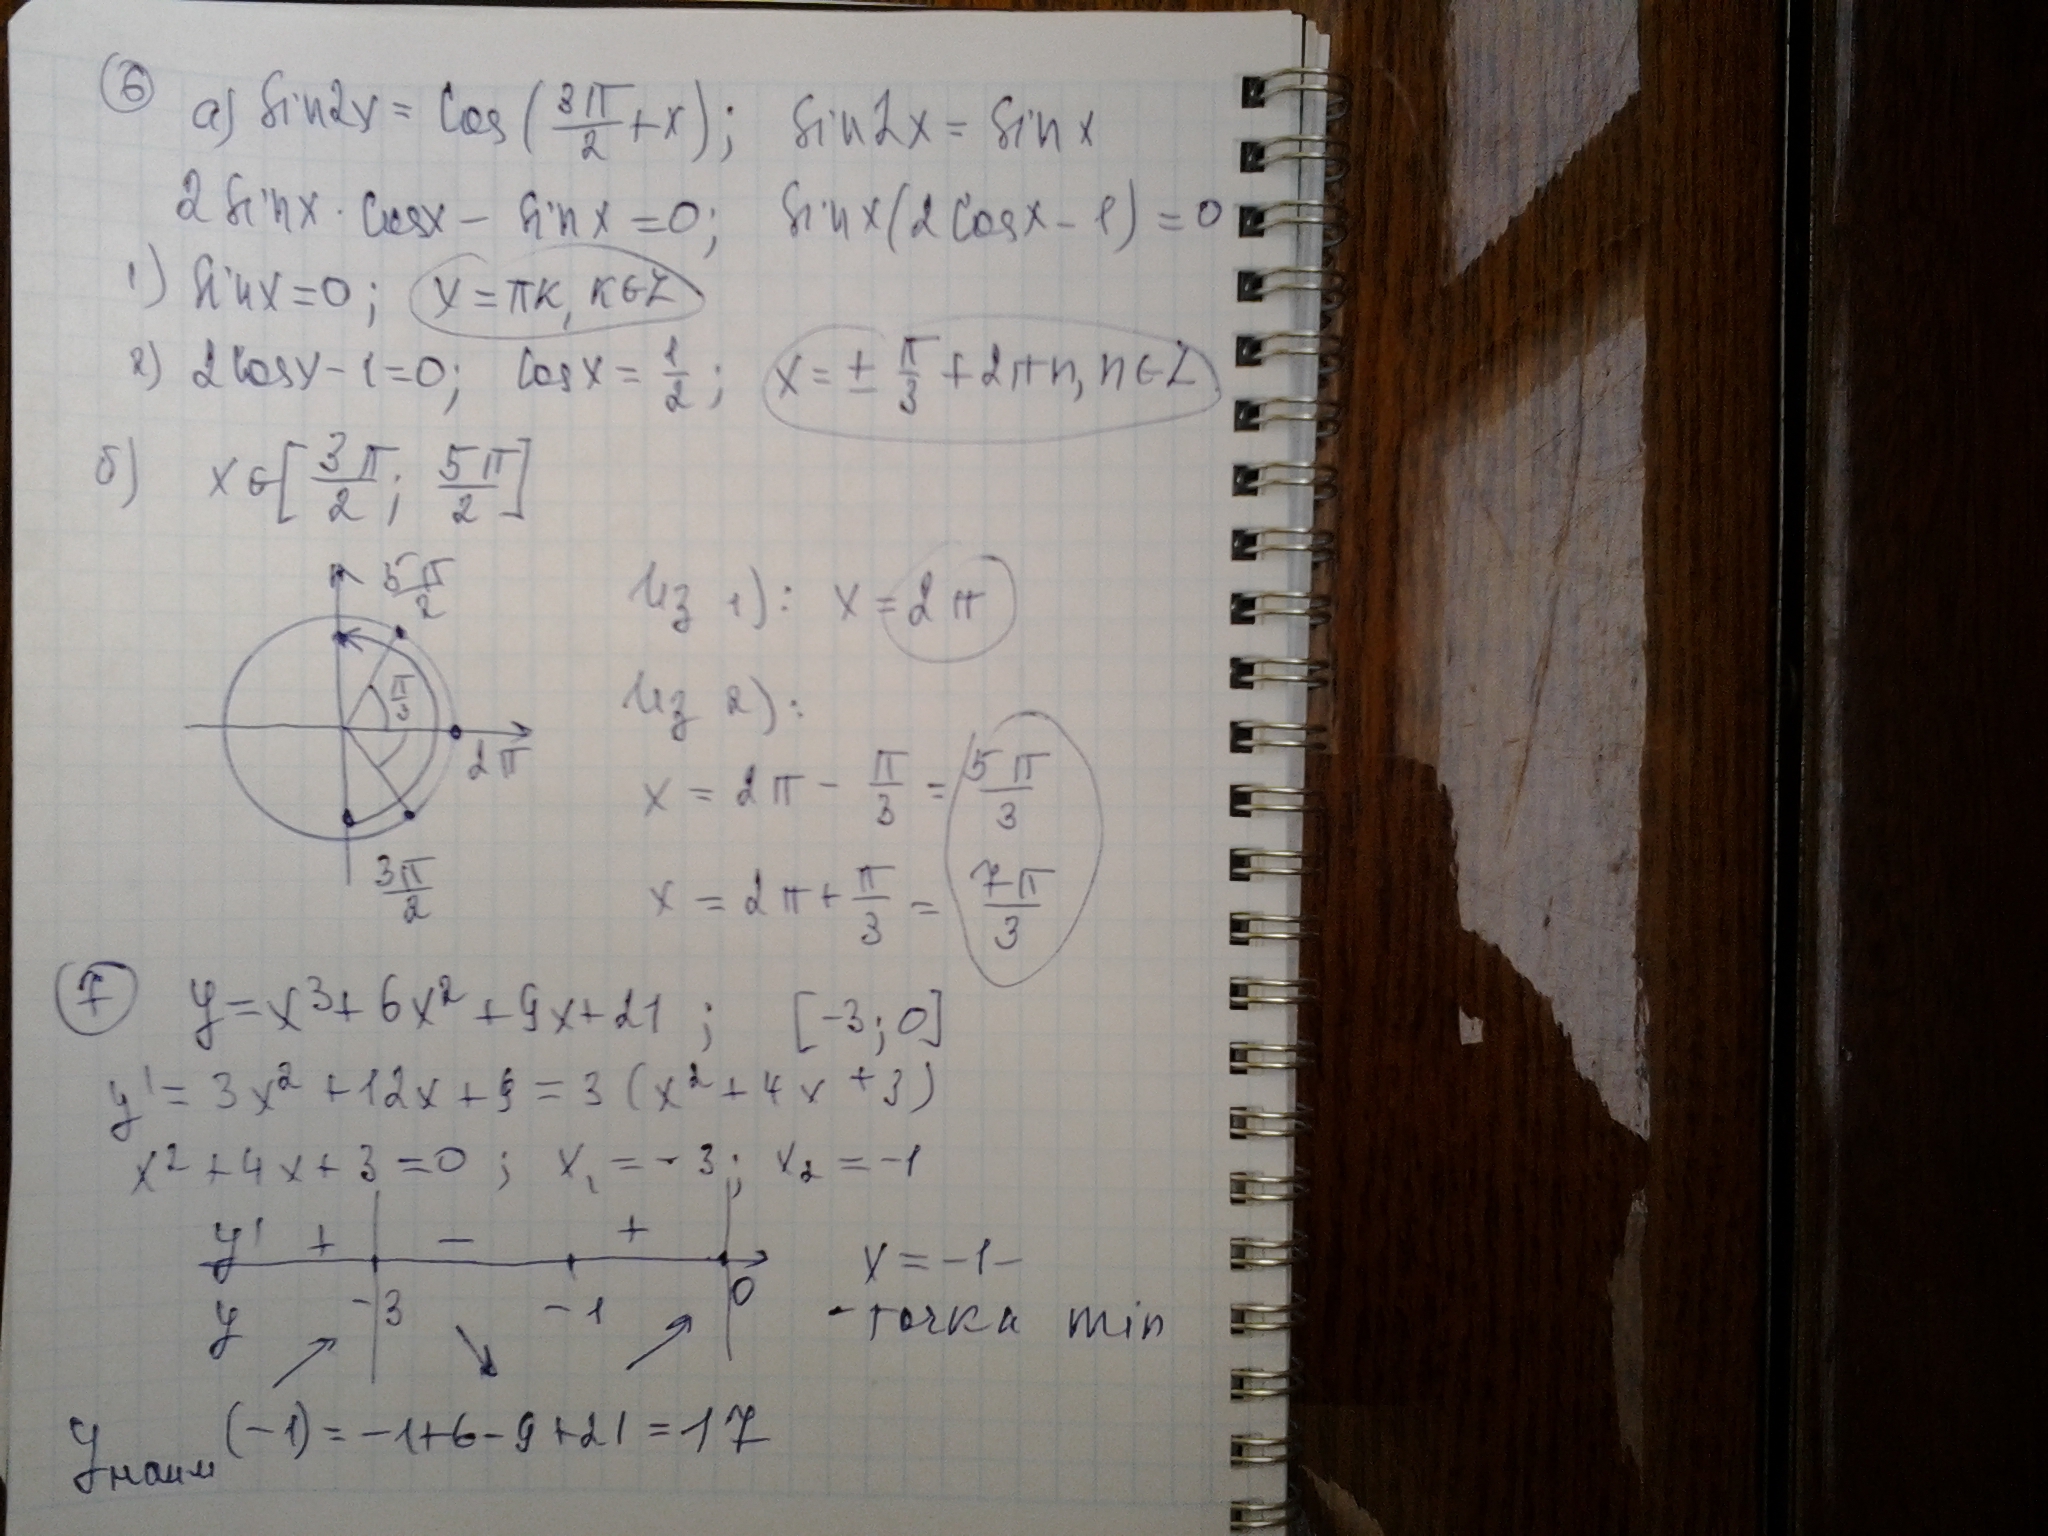 6
а) sin2x = cos(3π/2 + x); sin2x = sinx
2sinx · cosx − sinx = 0; sinx(2cosx − 1) = 0
1) sinx = 0; x = πk, k∈Z
2) 2cosx − 1 = 0; cosx = 1/2; x = ± π/3 + 2πn, n∈Z
б) x∈[3π/2; 5π/2]
5π/2
π/3
2π
3π/2
Из 1): x = 2π
Из 2):
x = 2π − π/3 = 5π/3
x = 2π + π/3 = 7π/3
7 y = x³ + 6x² + 9x + 21; [−3; 0]
y' = 3x² + 12x + 9 = 3(x² + 4x + 3)
x² + 4x + 3 = 0; x₁ = −3; x₂ = −1
y' + − +
y −3 −1 0
x = −1 −
− точка min
yнаим(−1) = −1+6−9+21 = 17